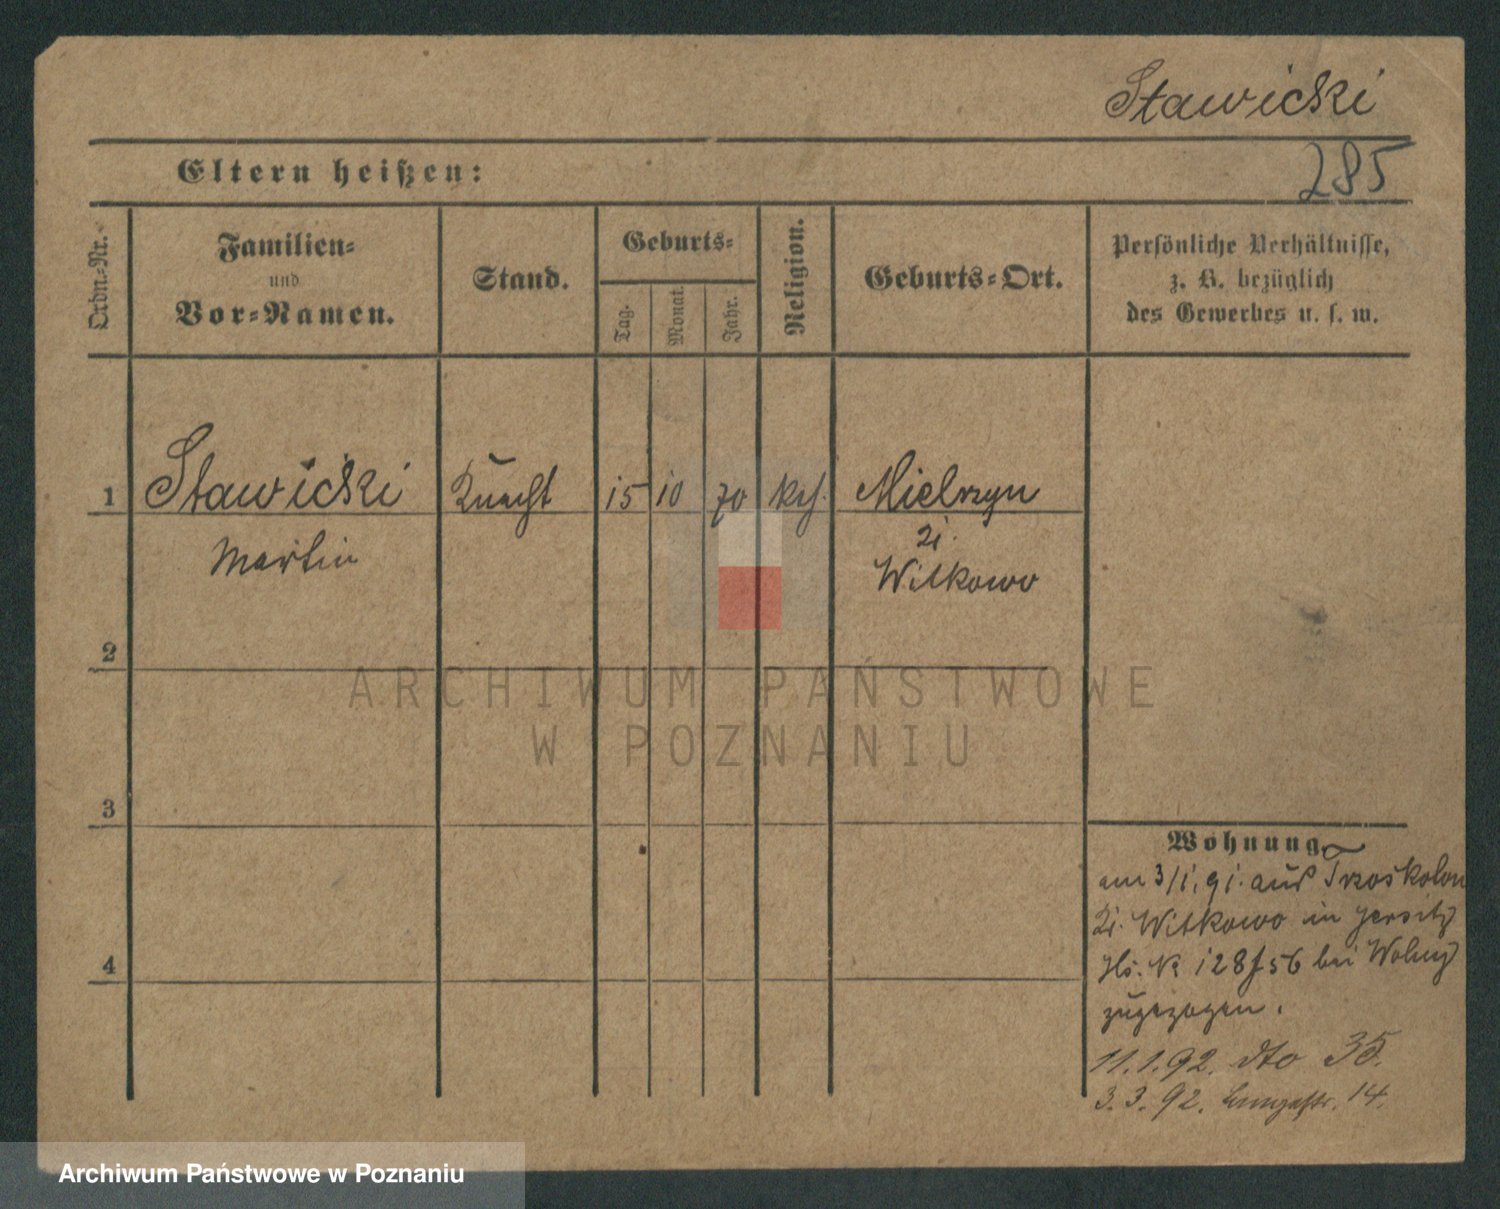 Stawicki
285
Eltern heißen:
Ordn.-Nr.
Familien-
und
Vor-Namen.
Stand.
Geburts-
Tag.
Monat.
Jahr.
Religion.
Geburts-Ort.
Persönliche Verhältnisse,
z. B. bezüglich
des Gewerbes u. s. w.
1 Stawicki Knecht 15 10 70 kth. Mielrzyn
Martin
Witkowo
2
3
4
Wohnung
am 3/1.91. aus Trzoskolon
Witkowo in Jersitz
Hs. № 128/56 bei Wolny
zugezogen.
11.1.92. dto 35.
3.3.92. Langestr. 14.
ARCHIWUM PAŃSTWOWE
W POZNANIU
Archiwum Państwowe w Poznaniu